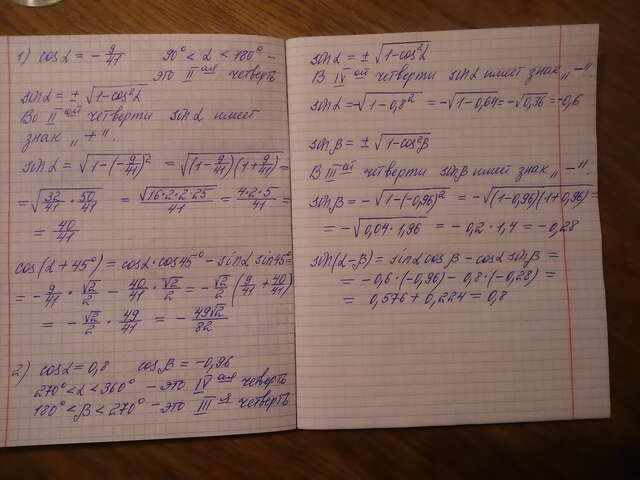 1) cos α = - 9/41    90° < α < 180° -
это II ая четверть
sin α = ± √(1-cos²α)
Во II ой четверти sin α имеет
знак „+".
sin α = √(1-(-9/41)²) = √((1-9/41)(1+9/41)) =
= √(32/41 · 50/41) = √(16·2·2·25)/41 = 4·2·5/41 =
= 40/41
cos(α+45°) = cos α · cos 45° - sin α sin 45° =
= -9/41 · √2/2 - 40/41 · √2/2 = -√2/2 (9/41 + 40/41)
= -√2/2 · 49/41 = -49√2/82
2) cos α = 0,8    cos β = -0,96
270° < α < 360° - это IV ая четверть
180° < β < 270° - это III я четверть
sin α = ± √(1-cos²α)
В IV ой четверти sin α имеет знак „-".
sin α = -√(1-0,8²) = -√(1-0,64) = -√0,36 = -0,6
sin β = ± √(1-cos²β)
В III ей четверти sin β имеет знак „-".
sin β = -√(1-(-0,96)²) = -√((1-0,96)(1+0,96)) =
= -√(0,04·1,96) = -0,2·1,4 = -0,28
sin(α-β) = sin α cos β - cos α sin β =
= -0,6·(-0,96) - 0,8·(-0,28) =
= 0,576 + 0,224 = 0,8